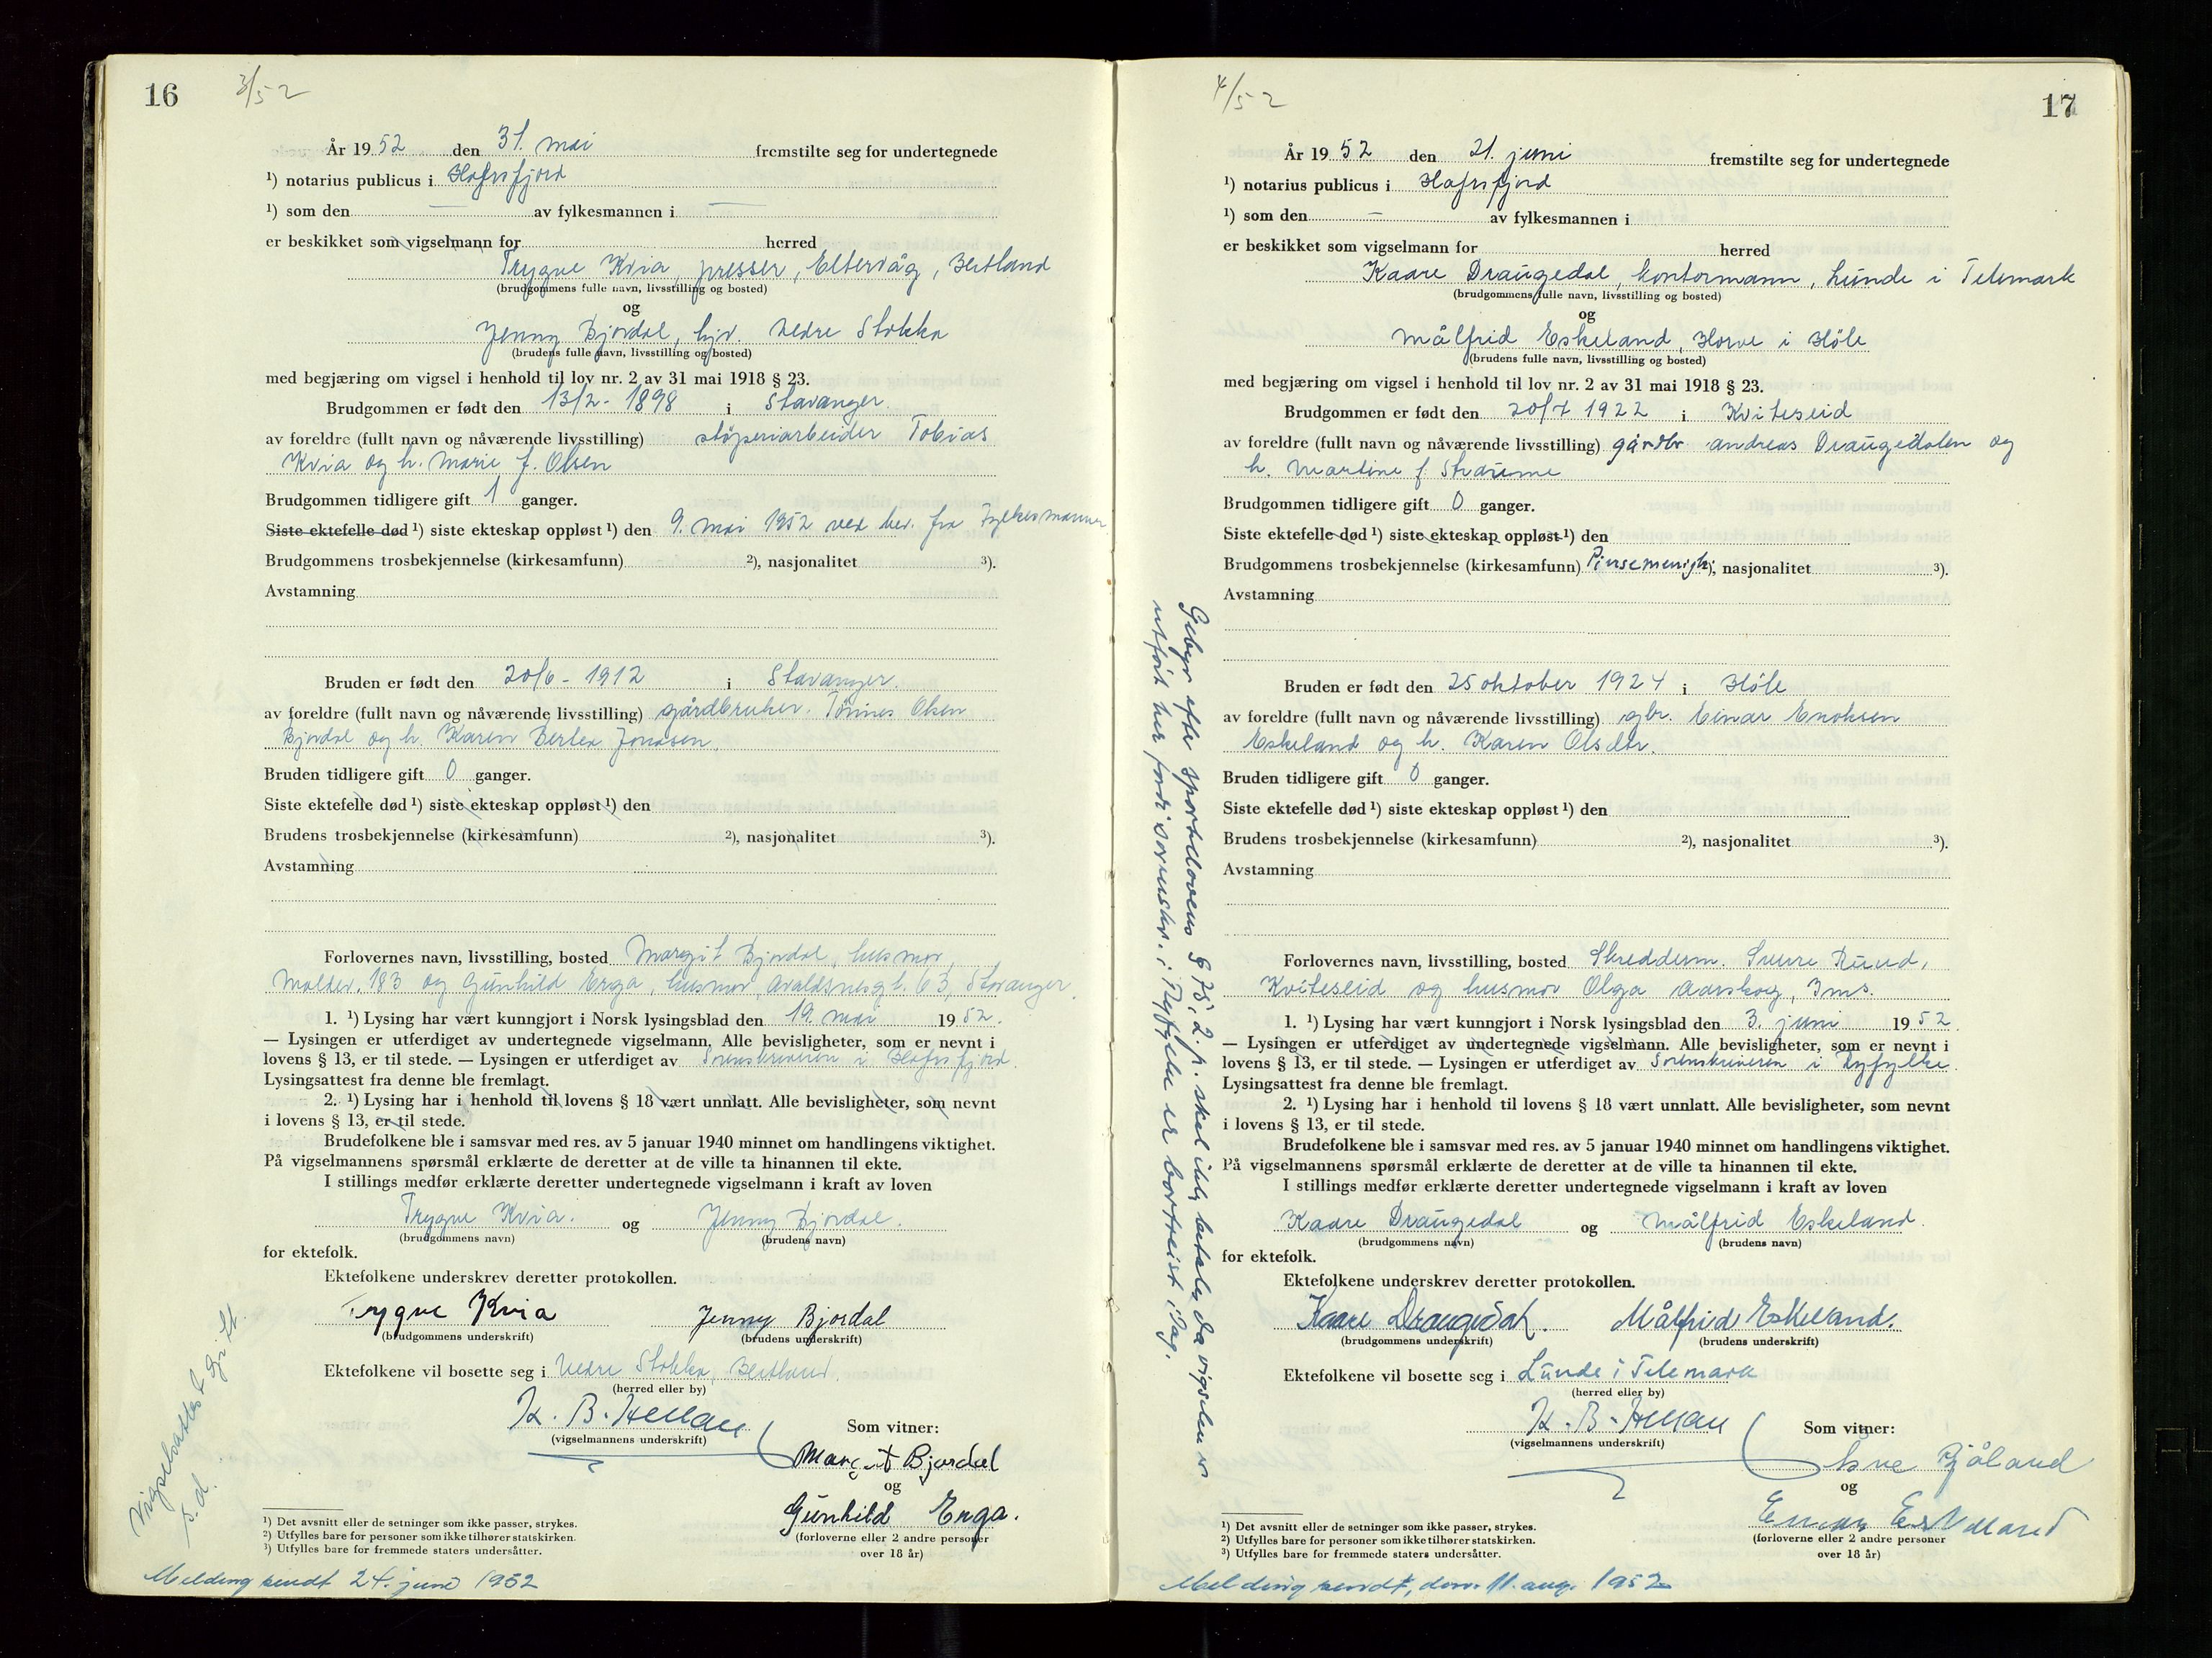 16
3/52
År 1952 den 31. mai fremstilte seg for undertegnede
¹) notarius publicus i Hafrsfjord
¹) som den — av fylkesmannen i —
er beskikket som vigselmann for herred
Trygve Kvia, presser, Eltervåg, Hetland
(brudgommens fulle navn, livsstilling og bosted)
og
Jenny Bjordal, hjv. Nedre Stokka
(brudens fulle navn, livsstilling og bosted)
med begjæring om vigsel i henhold til lov nr. 2 av 31 mai 1918 § 23.
Brudgommen er født den 13/2 - 1898 i Stavanger.
av foreldre (fullt navn og nåværende livsstilling) støperiarbeider Tobias
Kvia og h. Marie f. Olsen
Brudgommen tidligere gift 1 ganger.
Siste ektefelle død ¹) siste ekteskap oppløst ¹) den 9. mai 1952 ved bev. fra Fylkesmannen
Brudgommens trosbekjennelse (kirkesamfunn) ²), nasjonalitet ³).
Avstamning
Bruden er født den 20/6 - 1912 i Stavanger.
av foreldre (fullt navn og nåværende livsstilling) gårdbruker. Tønnes Olsen
Bjordal og h. Karen Bertea Jonasen.
Bruden tidligere gift 0 ganger.
Siste ektefelle død ¹) siste ekteskap oppløst ¹) den
Brudens trosbekjennelse (kirkesamfunn) ²), nasjonalitet ³).
Avstamning
Forlovernes navn, livsstilling, bosted Margit Bjordal, husmor,
183 og Gunhild Enga, husmor, Avaldsnesgt. 63, Stavanger.
1. ¹) Lysing har vært kunngjort i Norsk lysingsblad den 19. mai 1952.
— Lysingen er utferdiget av undertegnede vigselmann. Alle bevisligheter, som er nevnt i
lovens § 13, er til stede. — Lysingen er utferdiget av Sorenskriveren i Hafrsfjord.
Lysingsattest fra denne ble fremlagt.
2. ¹) Lysing har i henhold til lovens § 18 vært unnlatt. Alle bevisligheter, som nevnt
i lovens § 13, er til stede.
Brudefolkene ble i samsvar med res. av 5 januar 1940 minnet om handlingens viktighet.
På vigselmannens spørsmål erklærte de deretter at de ville ta hinannen til ekte.
I stillings medfør erklærte deretter undertegnede vigselmann i kraft av loven
Trygve Kvia. og Jenny Bjordal.
(brudgommens navn) (brudens navn)
for ektefolk.
Ektefolkene underskrev deretter protokollen.
Trygve Kvia Jenny Bjordal
(brudgommens underskrift) (brudens underskrift)
Ektefolkene vil bosette seg i Nedre Stokka, Hetland.
(herred eller by)
(vigselmannens underskrift)
Som vitner:
Margit Bjordal
og
Gunhild Enga.
(forloverne eller 2 andre personer
over 18 år)
Vigselsattest gitt
s. d.
¹) Det avsnitt eller de setninger som ikke passer, strykes.
²) Utfylles bare for personer som ikke tilhører statskirken.
³) Utfylles bare for fremmede staters undersåtter.
Melding sendt 24. juni 1952
17
4/52
År 1952 den 21. juni fremstilte seg for undertegnede
¹) notarius publicus i Hafrsfjord
¹) som den — av fylkesmannen i
er beskikket som vigselmann for herred
Kaare Draugedal, kontormann, Lunde i Telemark
(brudgommens fulle navn, livsstilling og bosted)
og
Målfrid Eskeland, Horve i Høle
(brudens fulle navn, livsstilling og bosted)
med begjæring om vigsel i henhold til lov nr. 2 av 31 mai 1918 § 23.
Brudgommen er født den 20/7 1922 i Kviteseid
av foreldre (fullt navn og nåværende livsstilling) gårdbr Andreas Draugedalen og
h. Martine f. Straume
Brudgommen tidligere gift 0 ganger.
Siste ektefelle død ¹) siste ekteskap oppløst ¹) den
Brudgommens trosbekjennelse (kirkesamfunn) Pinsemenigh; nasjonalitet ³).
Avstamning
Bruden er født den 25 oktober 1924 i Høle
av foreldre (fullt navn og nåværende livsstilling) gbr. Einar Enoksen
Eskeland og h. Karen Olsdtr.
Bruden tidligere gift 0 ganger.
Siste ektefelle død ¹) siste ekteskap oppløst ¹) den
Brudens trosbekjennelse (kirkesamfunn) ²), nasjonalitet ³).
Avstamning
Forlovernes navn, livsstilling, bosted Skredderm. Sverre Ruud,
Kviteseid og husmor Olga Aarskog, Ims.
1. ¹) Lysing har vært kunngjort i Norsk lysingsblad den 3. juni 1952
— Lysingen er utferdiget av undertegnede vigselmann. Alle bevisligheter, som er nevnt i
lovens § 13, er til stede. — Lysingen er utferdiget av Sorenskriveren i Ryfylke
Lysingsattest fra denne ble fremlagt.
2. ¹) Lysing har i henhold til lovens § 18 vært unnlatt. Alle bevisligheter, som nevnt
i lovens § 13, er til stede.
Brudefolkene ble i samsvar med res. av 5 januar 1940 minnet om handlingens viktighet.
På vigselmannens spørsmål erklærte de deretter at de ville ta hinannen til ekte.
I stillings medfør erklærte deretter undertegnede vigselmann i kraft av loven
Kaare Draugedal og Målfrid Eskeland.
(brudgommens navn) (brudens navn)
for ektefolk.
Ektefolkene underskrev deretter protokollen.
Kaare Draugedal. Målfrid Eskeland.
(brudgommens underskrift) (brudens underskrift)
Ektefolkene vil bosette seg i Lunde i Telemark
(herred eller by)
(vigselmannens underskrift)
Som vitner:
Bjåland
og
Einar Eskeland
(forloverne eller 2 andre personer
over 18 år)
¹) Det avsnitt eller de setninger som ikke passer, strykes.
²) Utfylles bare for personer som ikke tilhører statskirken.
³) Utfylles bare for fremmede staters undersåtter.
Melding sendt, den 11. aug. 1952
Gebyr efter sportelovens § 78, 2. p. skal ikke betales da vigselen er
utført her fordi sorenskr. i Ryfylke er bortreist idag.